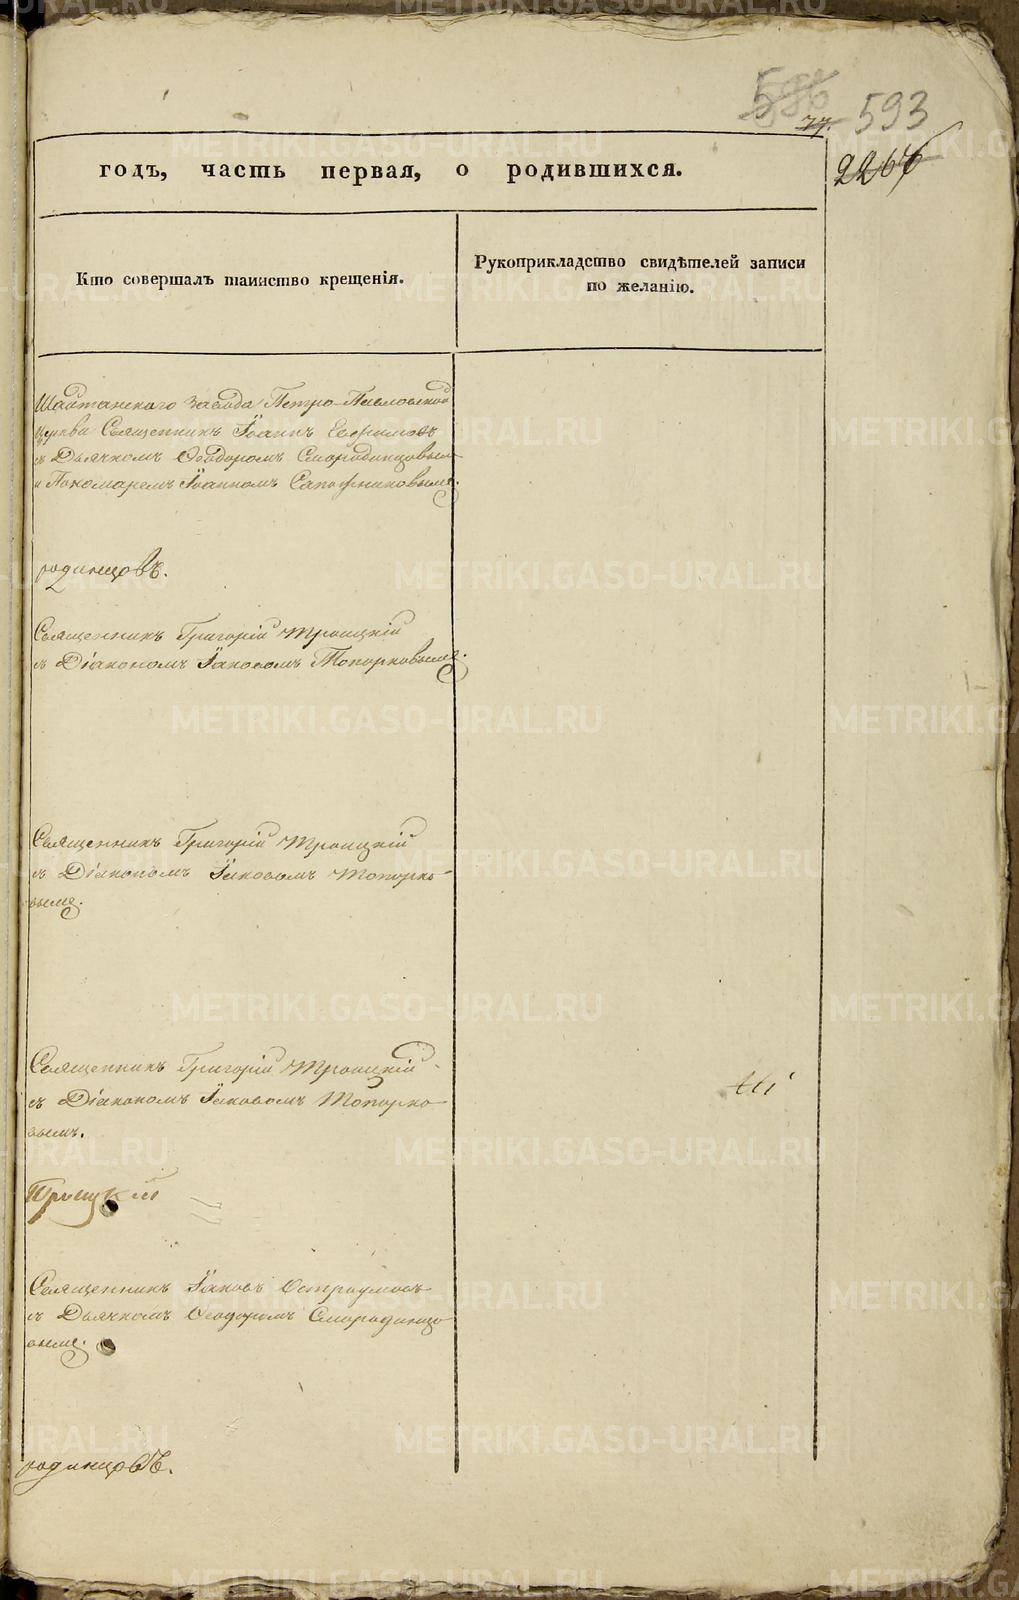 586
77.
593
2267
годъ, часть первая, о родившихся.
Кто совершалъ таинство крещенія.
Рукоприкладство свидѣтелей записи
по желанію.
Шайтанскаго завода Петро-Павловской
Церкви Священникъ Іоаннъ Ефимовъ
съ Дьячкомъ Ѳеодоромъ Смородинцовымъ
и Пономаремъ Іоанномъ Сапожниковымъ.
родинцовъ.
Священникъ Григорій Троицкій
съ Діакономъ Іаковомъ Топорковымъ.
Священникъ Григорій Троицкій
съ Діакономъ Іаковомъ Топорко-
вымъ.
Священникъ Григорій Троицкій
съ Діакономъ Іаковомъ Топорко-
вымъ.
Троицкій
Священникъ Іаковъ Остроумовъ
съ Дьячкомъ Ѳеодоромъ Смородинцо
вымъ.
родинцовъ.
METRIKI.GASO-URAL.RU